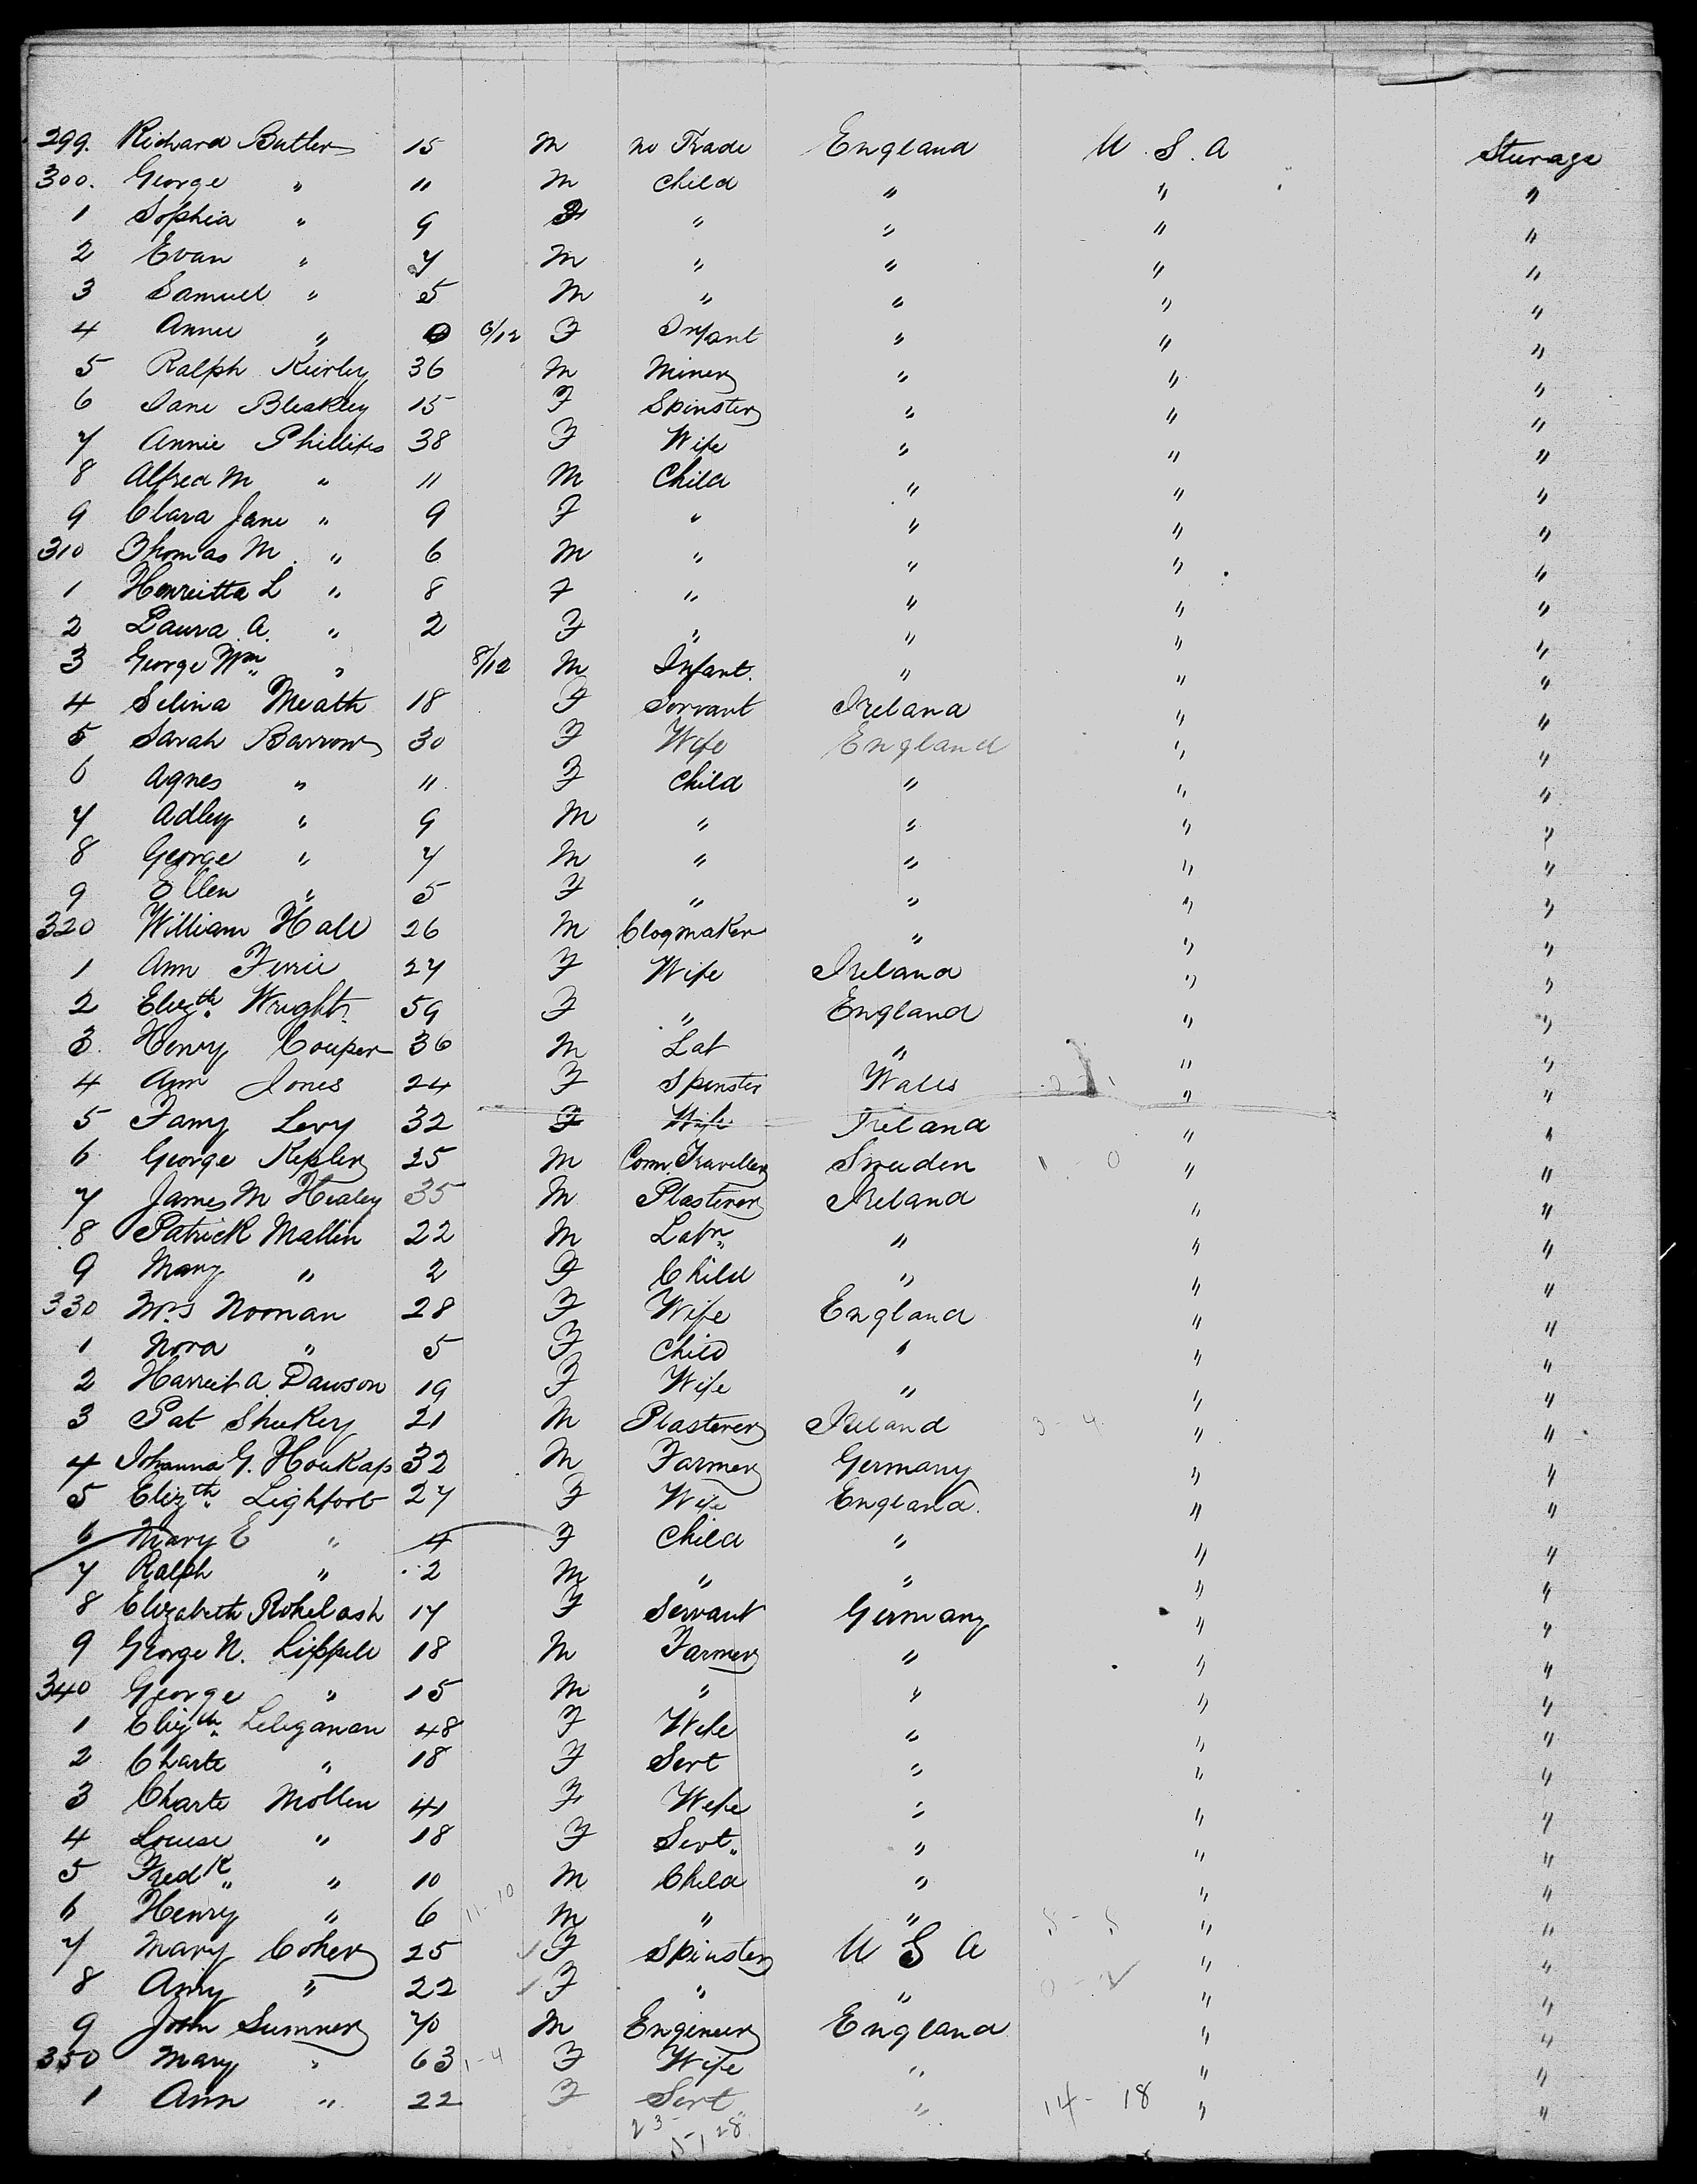 299. Richard Butler 15 M no Trade England U.S.A Sturage
300. George " 11 M Child " " "
1 Sophia " 9 F " " " "
2 Evan " 7 M " " " "
3 Samuel " 5 M " " " "
4 Annie " 0 6/12 F Infant " " "
5 Ralph Kirley 36 M Miner " " "
6 Jane Bleakley 15 F Spinster " " "
7 Annie Phillips 38 F Wife " " "
8 Alfred M " 11 M Child " " "
9 Clara Jane " 9 F " " " "
310 Thomas M. " 6 M " " " "
1 Henreitta L " 8 F " " " "
2 Laura A. " 2 F " " " "
3 George Wm " 8/12 M Infant. " " "
4 Selina Meath 18 F Servant Ireland " "
5 Sarah Barrow 30 F Wife England " "
6 Agnes " 11 F Child " " "
7 Adley " 9 M " " " "
8 George " 7 M " " " "
9 Ellen " 5 F " " " "
320 William Hall 26 M Clogmaker " " "
1 Ann Ferrie 27 F Wife Ireland " "
2 Elizth Wright 59 F " England " "
3. Henry Couper 36 M Lab " " "
4 Ann Jones 24 F Spinster Wales " "
5 Fany Levy 32 F Wife Ireland " "
6 George Kepler 25 M Com. Traveller Sweden 1 - 0 " "
7 James M Healey 35 M Plasterer Ireland " "
8 Patrick Mallin 22 M Labr " " "
9 Mary " 2 F Child " " "
330 Mrs Noonan 28 F Wife England " "
1 Nora " 5 F Child " " "
2 Harriet A Dawson 19 F Wife " " "
3 Pat Sheekey 21 M Plasterer Ireland 3 - 4 " "
4 Johanna G. Houkap 32 M Farmer Germany " "
5 Elizth Lighfoot 27 F Wife England. " "
6 Mary E " 4 F Child " " "
7 Ralph " 2 M " " " "
8 Elizabeth Rohelash 17 F Servant Germany " "
9 George N. Lippell 18 M Farmer " " "
340 George " 15 M " " " "
1 Elizth Leleganan 48 F Wife " " "
2 Charte " 18 F Sert " " "
3 Charte Mollen 41 F Wife " " "
4 Louise " 18 F Sert " " "
5 Fredk " 10 M Child " " "
6 Henry " 6 11-10 M " " " "
7 Mary Coher 25 F Spinster U S A " "
8 Amy " 22 F " " " "
9 John Sumner 70 M Engineer England " "
350 Mary " 63 1-4 F Wife " " "
1 Ann " 22 F Sert " 14 - 18 " "
23
28